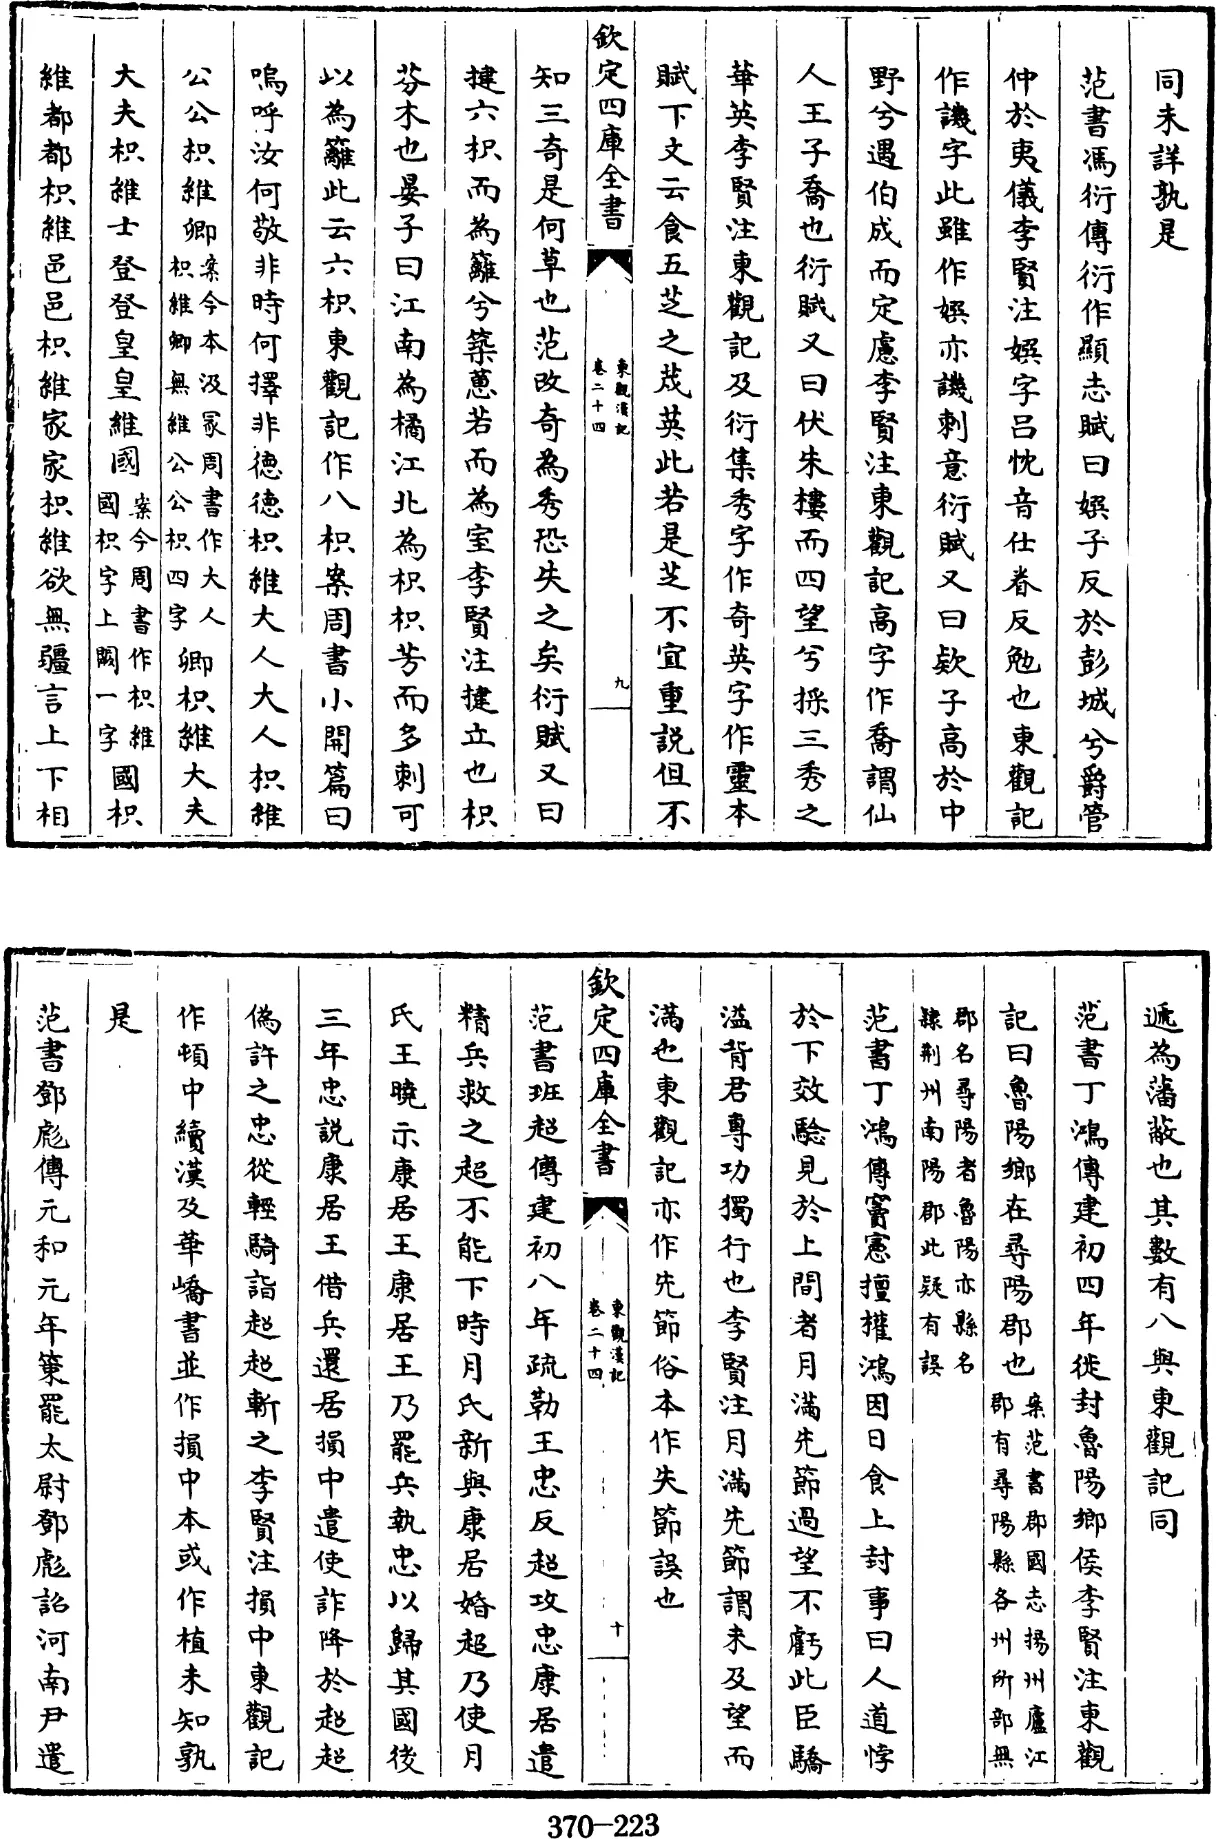 同未詳孰是
范書馮衍傳衍作顯志賦曰娱子反於彭城兮爵管
仲於夷儀李賢注娱字呂忱音仕眷反勉也東觀記
作譏字此雖作娱亦譏刺意衍賦又曰款子高於中
野兮遇伯成而定慮李賢注東觀記高字作喬謂仙
人王子喬也衍賦又曰伏朱樓而四望兮採三秀之
華英李賢注東觀記及衍集秀字作奇英字作靈本
賦下文云食五芝之茂英此若是芝不宜重説但不
欽定四庫全書
東觀漢記
卷二十四
九
知三奇是何草也范改奇為秀恐失之矣衍賦又曰
揵六枳而為籬兮築蕙若而為室李賢注揵立也枳
芬木也晏子曰江南為橘江北為枳枳芳而多刺可
以為籬此云六枳東觀記作八枳案周書小開篇曰
嗚呼汝何敬非時何擇非德德枳維大人大人枳維
公公枳維卿案今本汲冡周書作大人枳維卿無維公公枳四字卿枳維大夫
大夫枳維士登登皇皇維國案今周書作枳維國枳字上闕一字國枳
維都都枳維邑邑枳維家家枳維欲無疆言上下相
遞為藩蔽也其數有八與東觀記同
范書丁鴻傳建初四年徙封魯陽鄉侯李賢注東觀
記曰魯陽鄉在尋陽郡也案范書郡國志揚州廬江郡有尋陽縣各州所部無
郡名尋陽者魯陽亦縣名隸荆州南陽郡此疑有誤
范書丁鴻傳竇憲擅權鴻因日食上封事曰人道悖
於下效驗見於上間者月滿先節過望不虧此臣驕
溢背君專功獨行也李賢注月滿先節謂未及望而
滿也東觀記亦作先節俗本作失節誤也
欽定四庫全書
東觀漢記
卷二十四
十
范書班超傳建初八年疏勒王忠反超攻忠康居遣
精兵救之超不能下時月氏新與康居婚超乃使月
氏王曉示康居王康居王乃罷兵執忠以歸其國後
三年忠説康居王借兵還居損中遣使詐降於超超
偽許之忠從輕騎詣超超斬之李賢注損中東觀記
作頓中續漢及華嶠書並作損中本或作植未知孰
是
范書鄧彪傳元和元年策罷太尉鄧彪詔河南尹遣
370-223